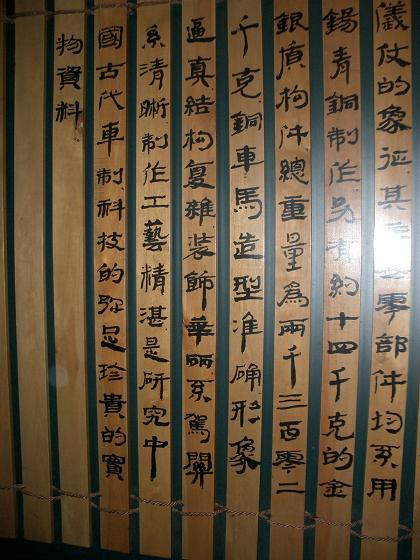 儀仗的象征其主要零部件均系用
錫青銅制作另有約十四千克的金
銀質构件總重量為兩千三百零二
千克銅車馬造型准确形象
逼真結构复雜裝飾華丽系駕關
系清晰制作工藝精湛是研究中
國古代車制科技的弥足珍貴的實
物資料